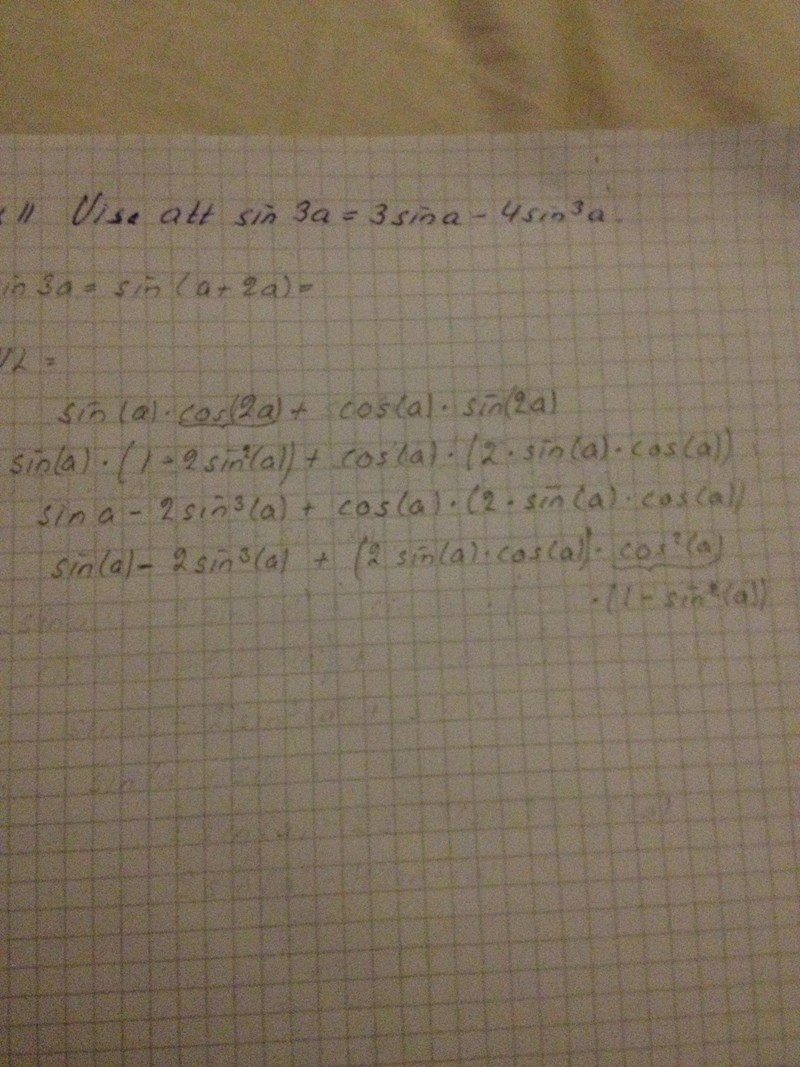 11 Visa att sin 3a = 3sina - 4sin³a.
sin 3a = sin (a + 2a) =
VL =
sin (a) · cos(2a) + cos(a) · sin(2a)
sin(a) · (1 - 2sin²(a)) + cos(a) · (2 · sin(a) · cos(a))
sin a - 2sin³(a) + cos(a) · (2 · sin(a) · cos(a))
sin(a) - 2sin³(a) + (2 sin(a) · cos(a)) · cos²(a)
· (1 - sin²(a))